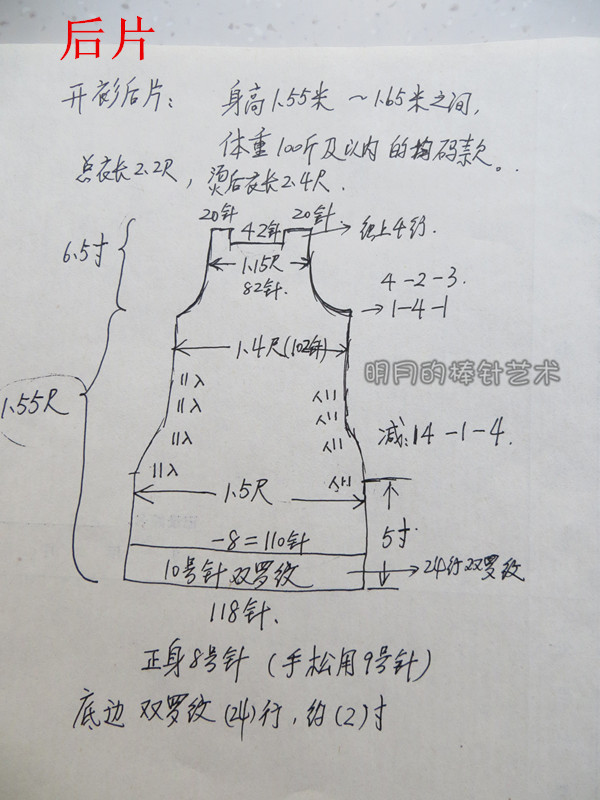 后片
开衫后片： 身高1.55米～1.65米之间,
体重100斤及以内的均码款。
总衣长2.2尺，烫后衣长2.4尺.
20针 42针 20针 → 织上4行.
6.5寸
1.15尺
82针.
4-2-3.
→ 1-4-1
1.4尺(102针)
明月的棒针艺术
1.55尺
||入 人||
||入 人||
||入 人||
||入 人||
减:14-1-4.
1.5尺
5寸
-8=110针
10号针双罗纹 → 24行双罗纹
118针.
正身8号针（手松用9号针）
底边 双罗纹(24)行，约(2)寸